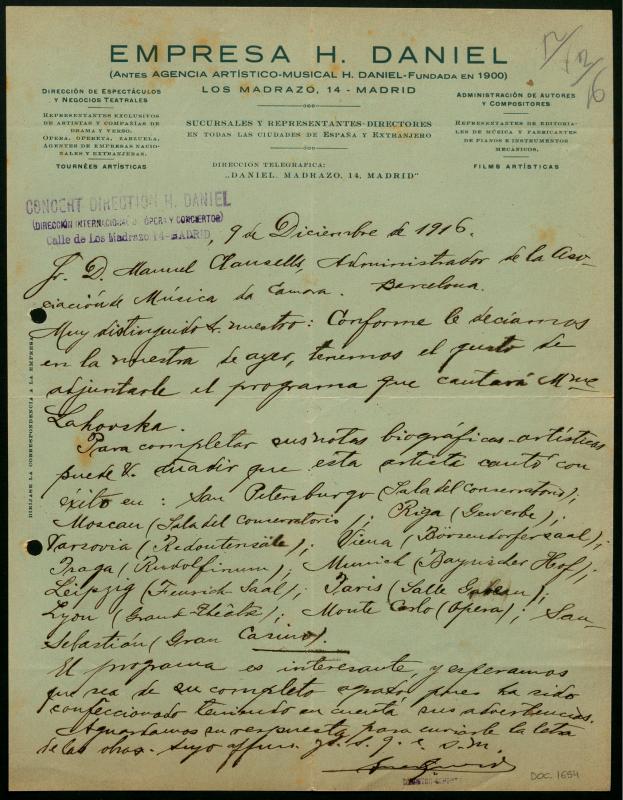 EMPRESA H. DANIEL
(ANTES AGENCIA ARTÍSTICO-MUSICAL H. DANIEL-FUNDADA EN 1900)
LOS MADRAZO, 14 - MADRID
DIRECCIÓN DE ESPECTÁCULOS
Y NEGOCIOS TEATRALES
REPRESENTANTES EXCLUSIVOS
DE ARTISTAS Y COMPAÑÍAS DE
DRAMA Y VERSO.
OPERA, OPERETA, ZARZUELA,
AGENTES DE EMPRESAS NACIO-
NALES Y EXTRANJERAS.
TOURNÉES ARTÍSTICAS
SUCURSALES Y REPRESENTANTES-DIRECTORES
EN TODAS LAS CIUDADES DE ESPAÑA Y EXTRANJERO
DIRECCIÓN TELEGRÁFICA:
„DANIEL. MADRAZO, 14, MADRID"
ADMINISTRACIÓN DE AUTORES
Y COMPOSITORES
REPRESENTANTES DE EDITORIA-
LES DE MÚSICA Y FABRICANTES
DE PIANOS E INSTRUMENTOS
MECÁNICOS.
FILMS ARTÍSTICAS
CONCERT DIRECTION H. DANIEL
(DIRECCIÓN INTERNACIONAL DE ÓPERA Y CONCIERTOS)
Calle de Los Madrazo 14-MADRID
, 9 de Diciembre de 1916.
Sr. D. Manuel Clausells, Administrador de la Aso-
ciación de Música da Camera. Barcelona.
Muy distinguido Sr. nuestro: Conforme le decíamos
en la nuestra de ayer, tenemos el gusto de
adjuntarle el programa que cantará Mme
Lahovska.
Para completar sus notas biográficas-artísticas
puede V. añadir que esta artista cantó con
éxito en: San Petersburgo (Sala del Conservatorio);
Moscou (Sala del Conservatorio); Riga (Gewerbe);
Varsovia (Redoutensäle); Viena (Börsendorfersaal);
Praga (Rudolfinum); Munich (Bayrischer Hof);
Leipzig (Feurich Saal); Paris (Salle Gaveau);
Lyon (Grand Théâtre); Monte Carlo (Opera); San-
Sebastián (Gran Casino).
El programa es interesante, y esperamos
que sea de su completo agrado, pues ha sido
confeccionado teniendo en cuenta sus advertencias.
Aguardamos su respuesta para enviarle la letra
de las obras. Suyo affmo. q. s. m.
DIRÍJASE LA CORRESPONDENCIA A LA EMPRESA
DOC. 1654